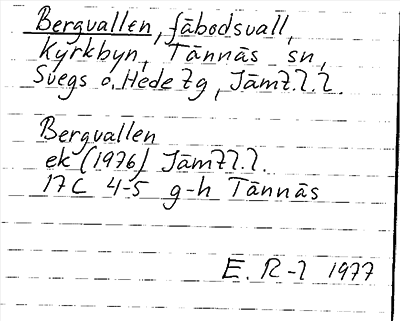 Bergvallen, fäbodsvall,
Kyrkbyn, Tännäs sn,
Svegs o. Hede tg, Jämt. l.
Bergvallen
ek (1976) Jämt l.
17C 4-5 g-h Tännäs
E. R-l 1977